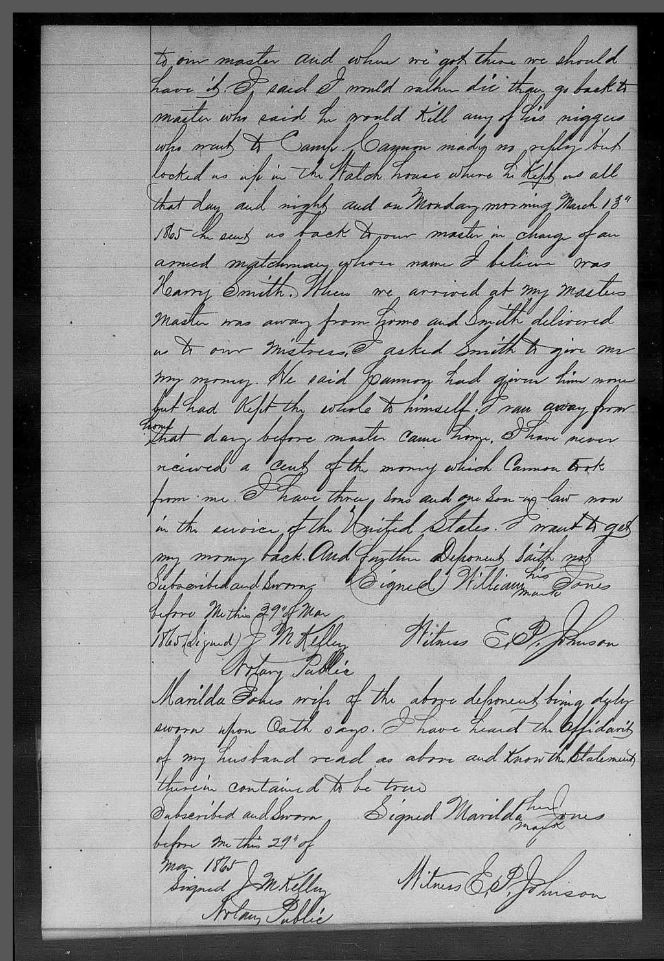 to our master and when we got there we should
have it. I said I would rather die than go back to
master who said he would kill any of his niggers
who went to Camp. Cannon made no reply but
locked us up in the Watch house where he kept us all
that day and night and on Monday morning March 13"
1865 he sent us back to our master in charge of an
armed watchman whose name I believe was
Harry Smith. When we arrived at my masters
master was away from home and Smith delivered
us to our mistress, I asked Smith to give me
my money. He said Cannon had given him none
but had kept the whole to himself. I ran away from
home
that day before master came home. I have never
received a cent of the money which Cannon took
from me. I have three sons and one son-in-law now
in the service of the United States. I want to get
my money back. And further Deponent saith not
Subscribed and Sworn (Signed) William his mark Jones
before Me this 29" of Mar
1865 (Signed) J M Kelley Witness E. P. Johnson
Notary Public
Marilda Jones wife of the above deponent being duly
sworn upon Oath says. I have heard the Affidavit
of my husband read as above and know the Statement
therein contained to be true
Subscribed and Sworn Signed Marilda her mark Jones
before me this 29" of
Mar 1865
Signed J. M Kelley Witness E. P. Johnson
Notary Public